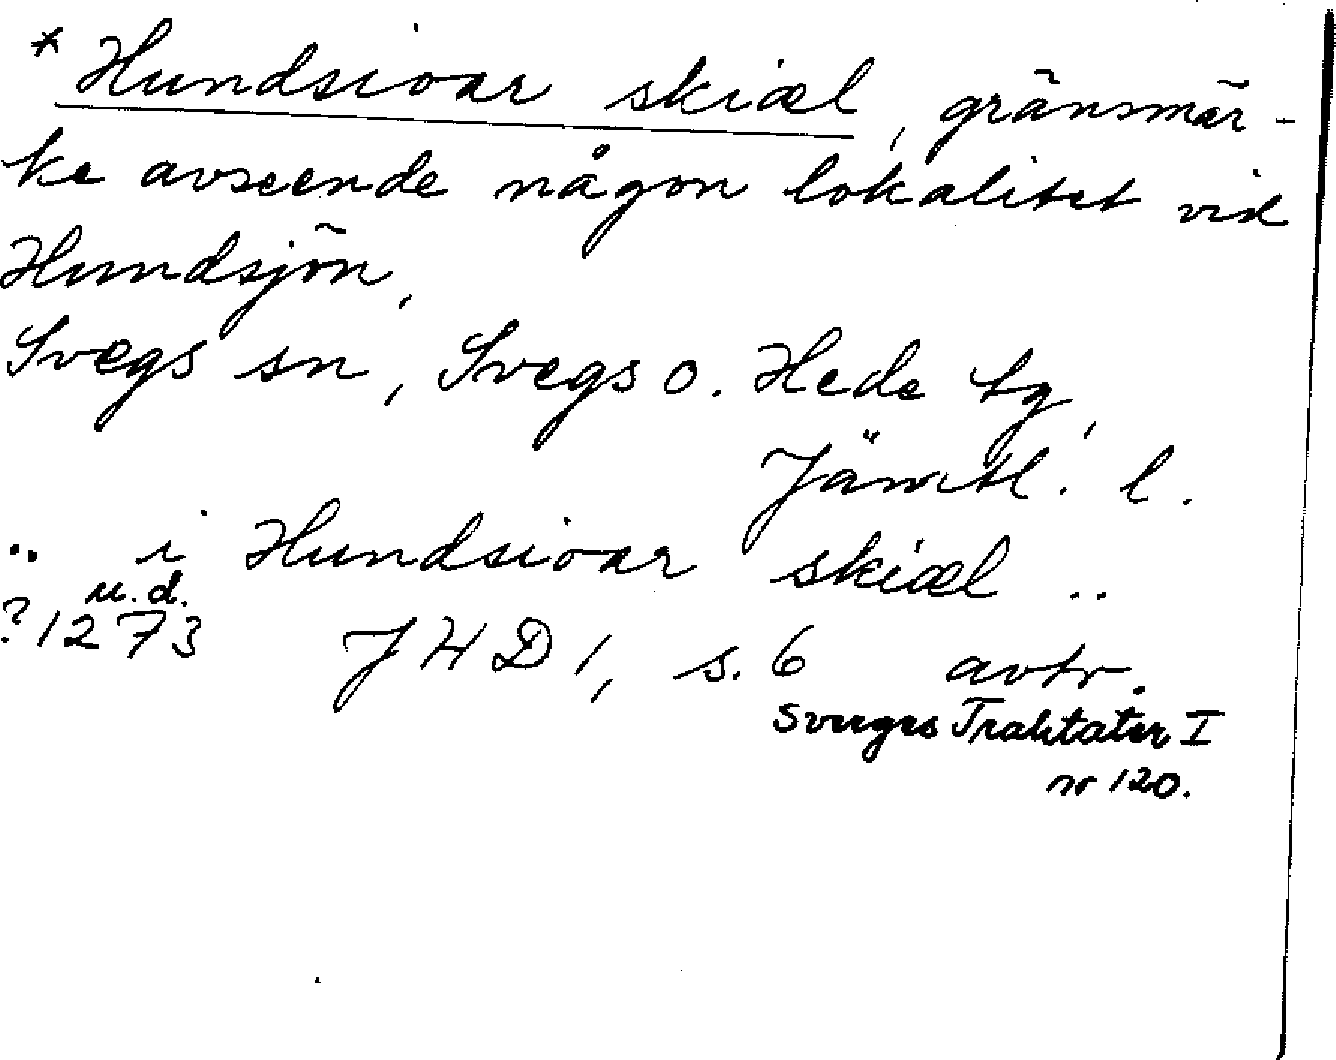 * Hundsioar skiæl, gränsmär-
ke avseende någon lokalitet vid
Hundsjön,
Svegs sn, Svegs o. Hede tg,
Jämtl. l.
.. i Hundsioar skiæl ..
u.d.
?1273 JHD 1, s. 6 avtr.
Sverges Traktater I
nr 120.